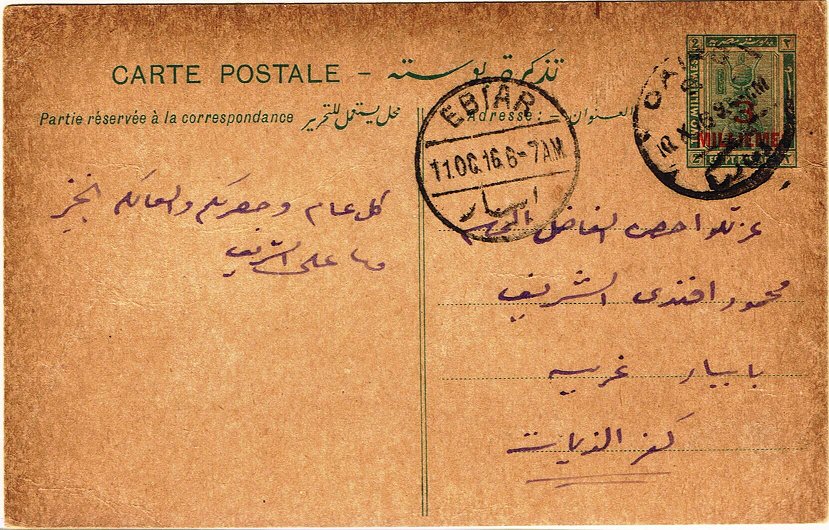 CARTE POSTALE - تذكرة بوسته
Partie réservée à la correspondance محل يستعمل للتحرير
Adresse: = العنوان
EBIAR
11.OC.16.6-7AM
ابيار
CAIRO
10 X 16 9 AM
2 ٢
TWO MILLIEMES
3
MILLIEMES
كل عام وحضرتكم والعائله بخير
على الشريف
عزتلو الفاضل
محمود افندى الشريف
بابيار غربيه
كفر الزيات